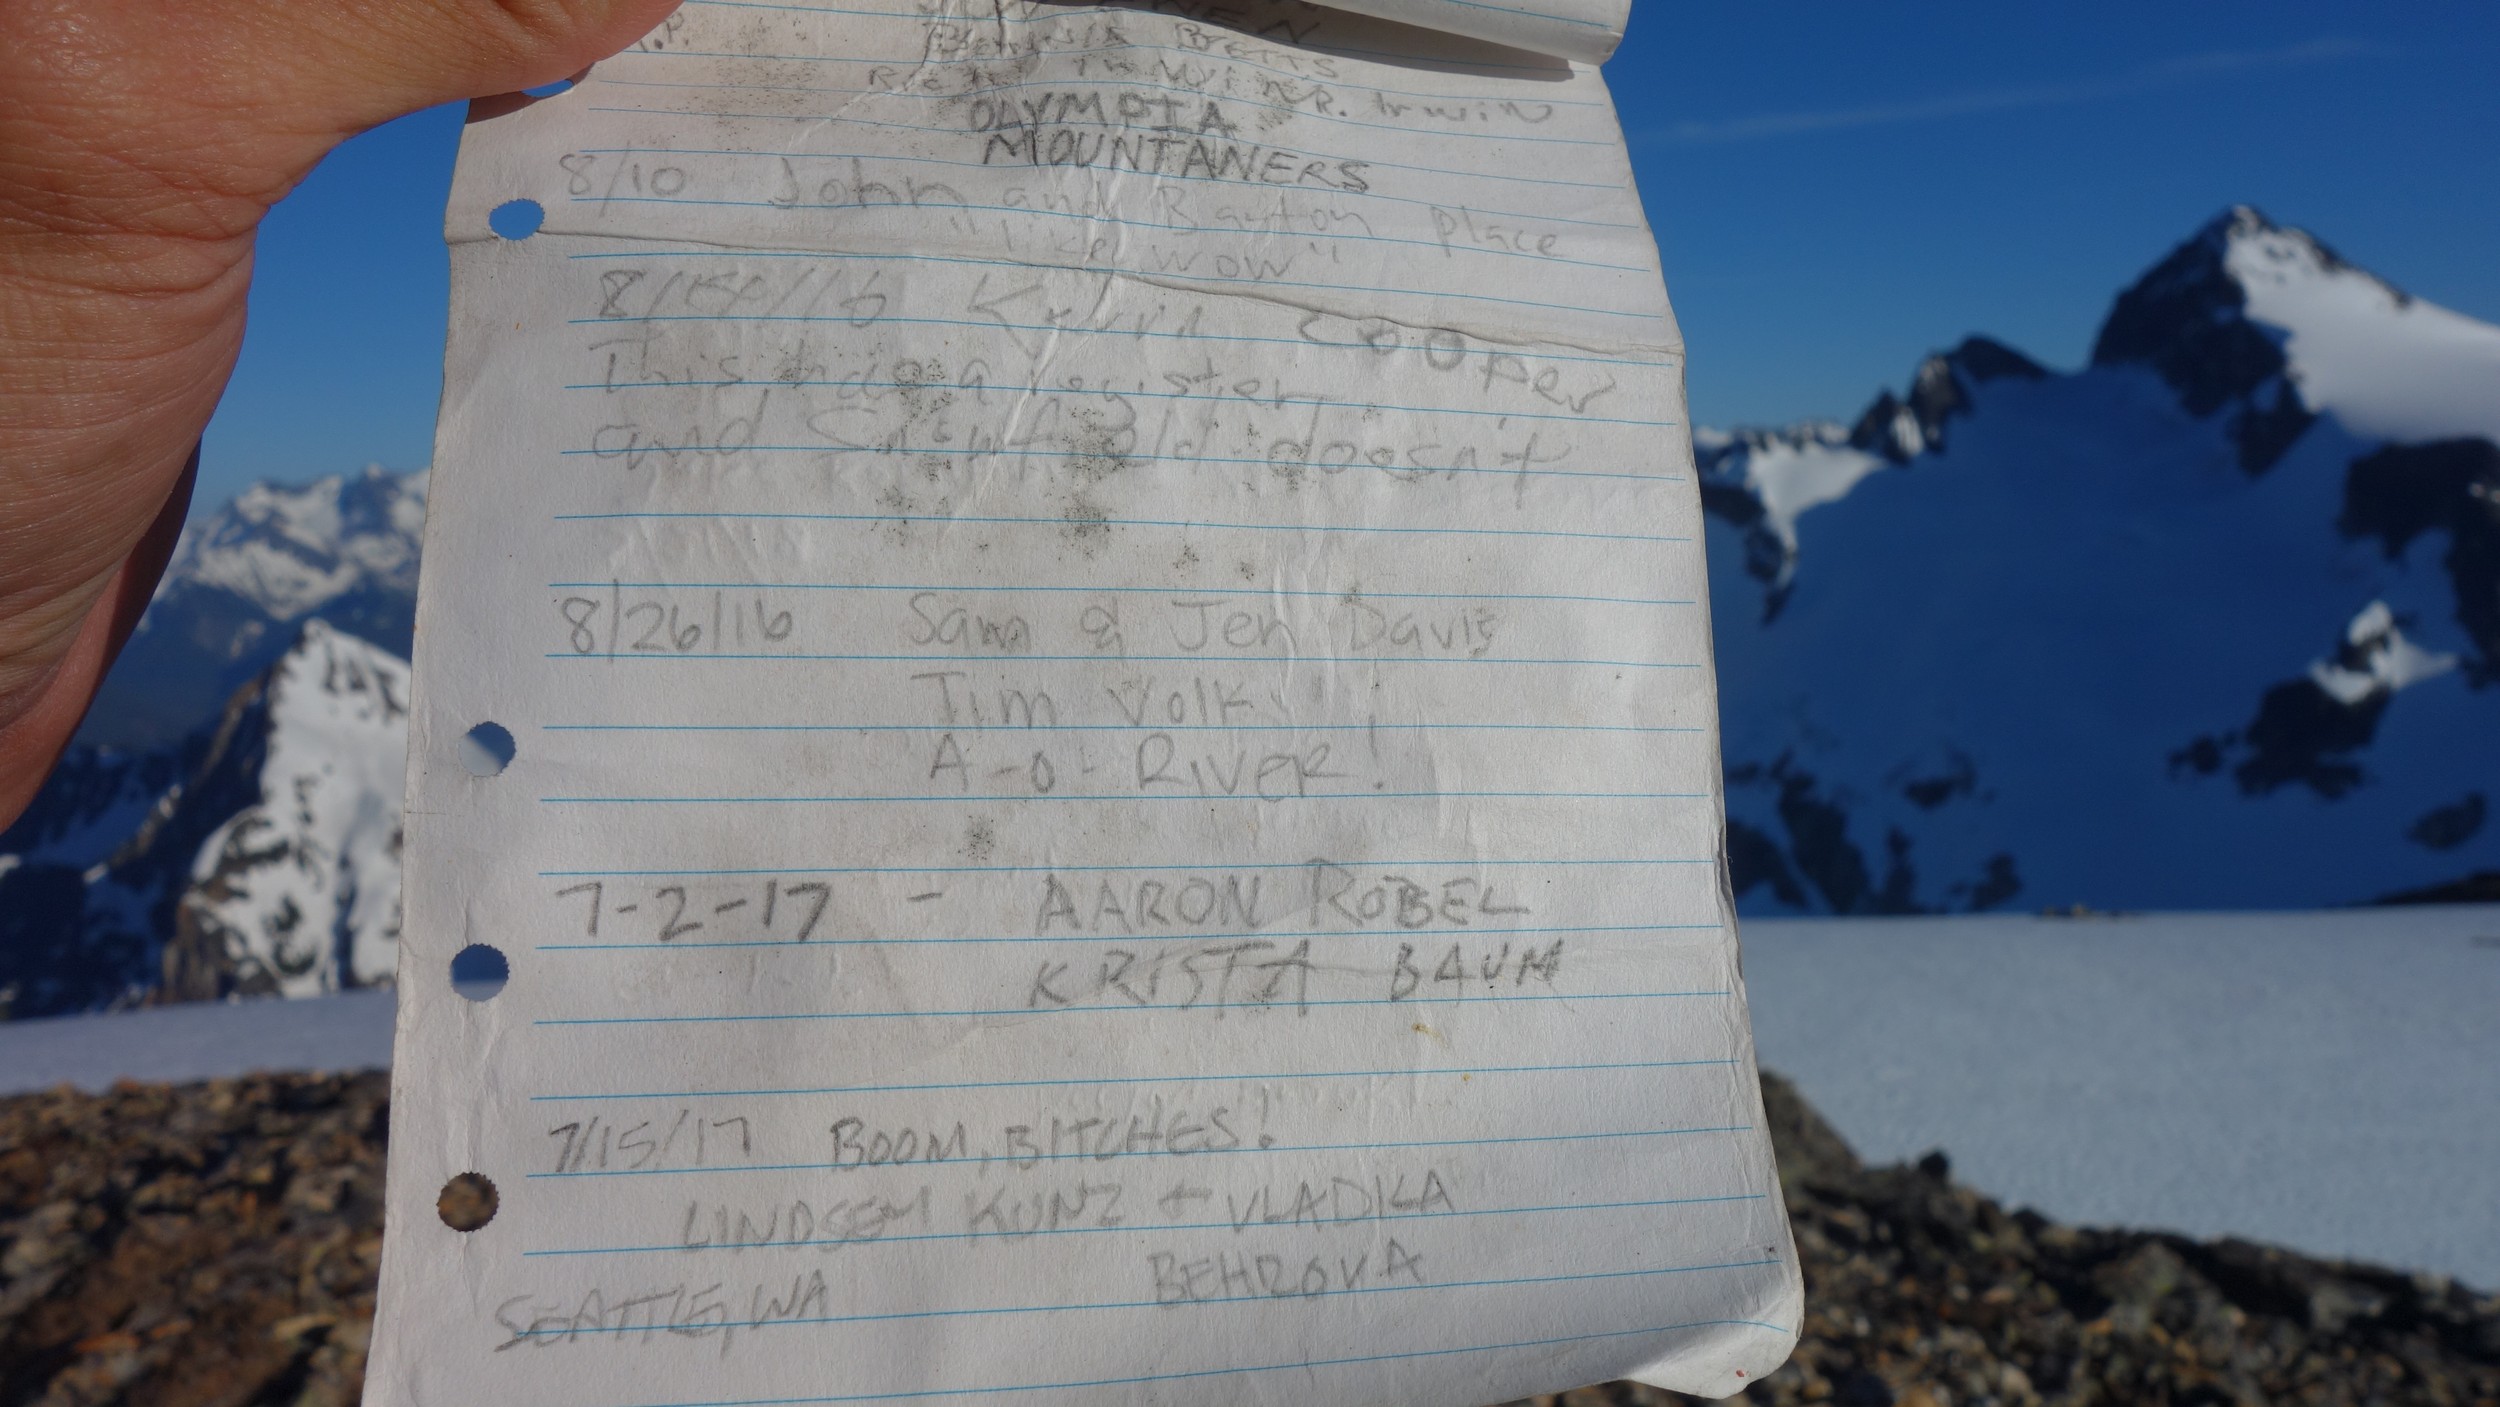 BETTS
R. Irwin
OLYMPIA
MOUNTANERS
8/10 John and Bayton Place
"like wow"
Kelvin Cooper
This has a register
and Snowfield doesn't
8/26/16 Sam & Jen Davis
Tim Volk
A-O-RIVER!
7-2-17 - AARON ROBEL
KRISTA BAUM
7/15/17 BOOM, BITCHES!
LINDSEY KUNZ + VLADIKA
BEHROVA
SEATTLE, WA